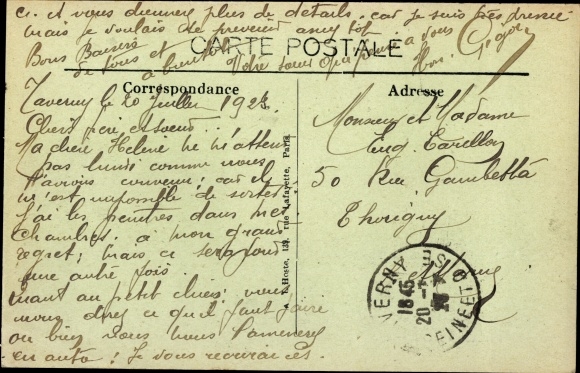 ci. et vous donnerez plus de détails, car je suis très pressée
mais je voulais te prévenir assez tôt
Bons Baisers
de tous et
à bientôt
Votre soeur qui pense à vous
CARTE POSTALE
Correspondance
Adresse
Taverny le 20 Juillet 1928
Cheri frère et soeur.
Ma chère Hélène ne m'attend
pas lundi comme nous
l'avions convenu; car il
m'est impossible de sortir
j'ai les peintres dans mes
chambres. à mon grand
regret; mais ce sera pour
une autre fois.
quant au petit chien; vous
nous direz ce qu'il faut faire
ou bien vous nous l'amenerez
en auto! Je vous recevrai
Monsieur et Madame
Eug.
50 Rue Gambetta
Thorigny
S. et Marne
A. L'Hoste, 139, rue Lafayette, Paris
TAVERNY
18 45
20 -7
28
SEINE ET O